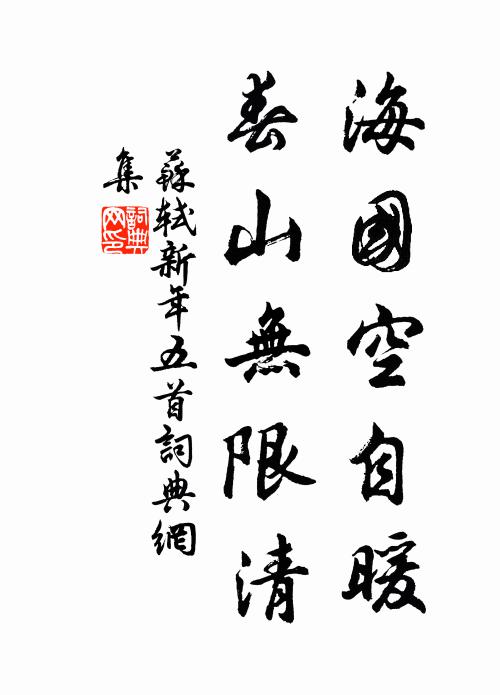 海國空自暖
春山無限清
蘇軾新年五首詞典網
集
詞典
网印